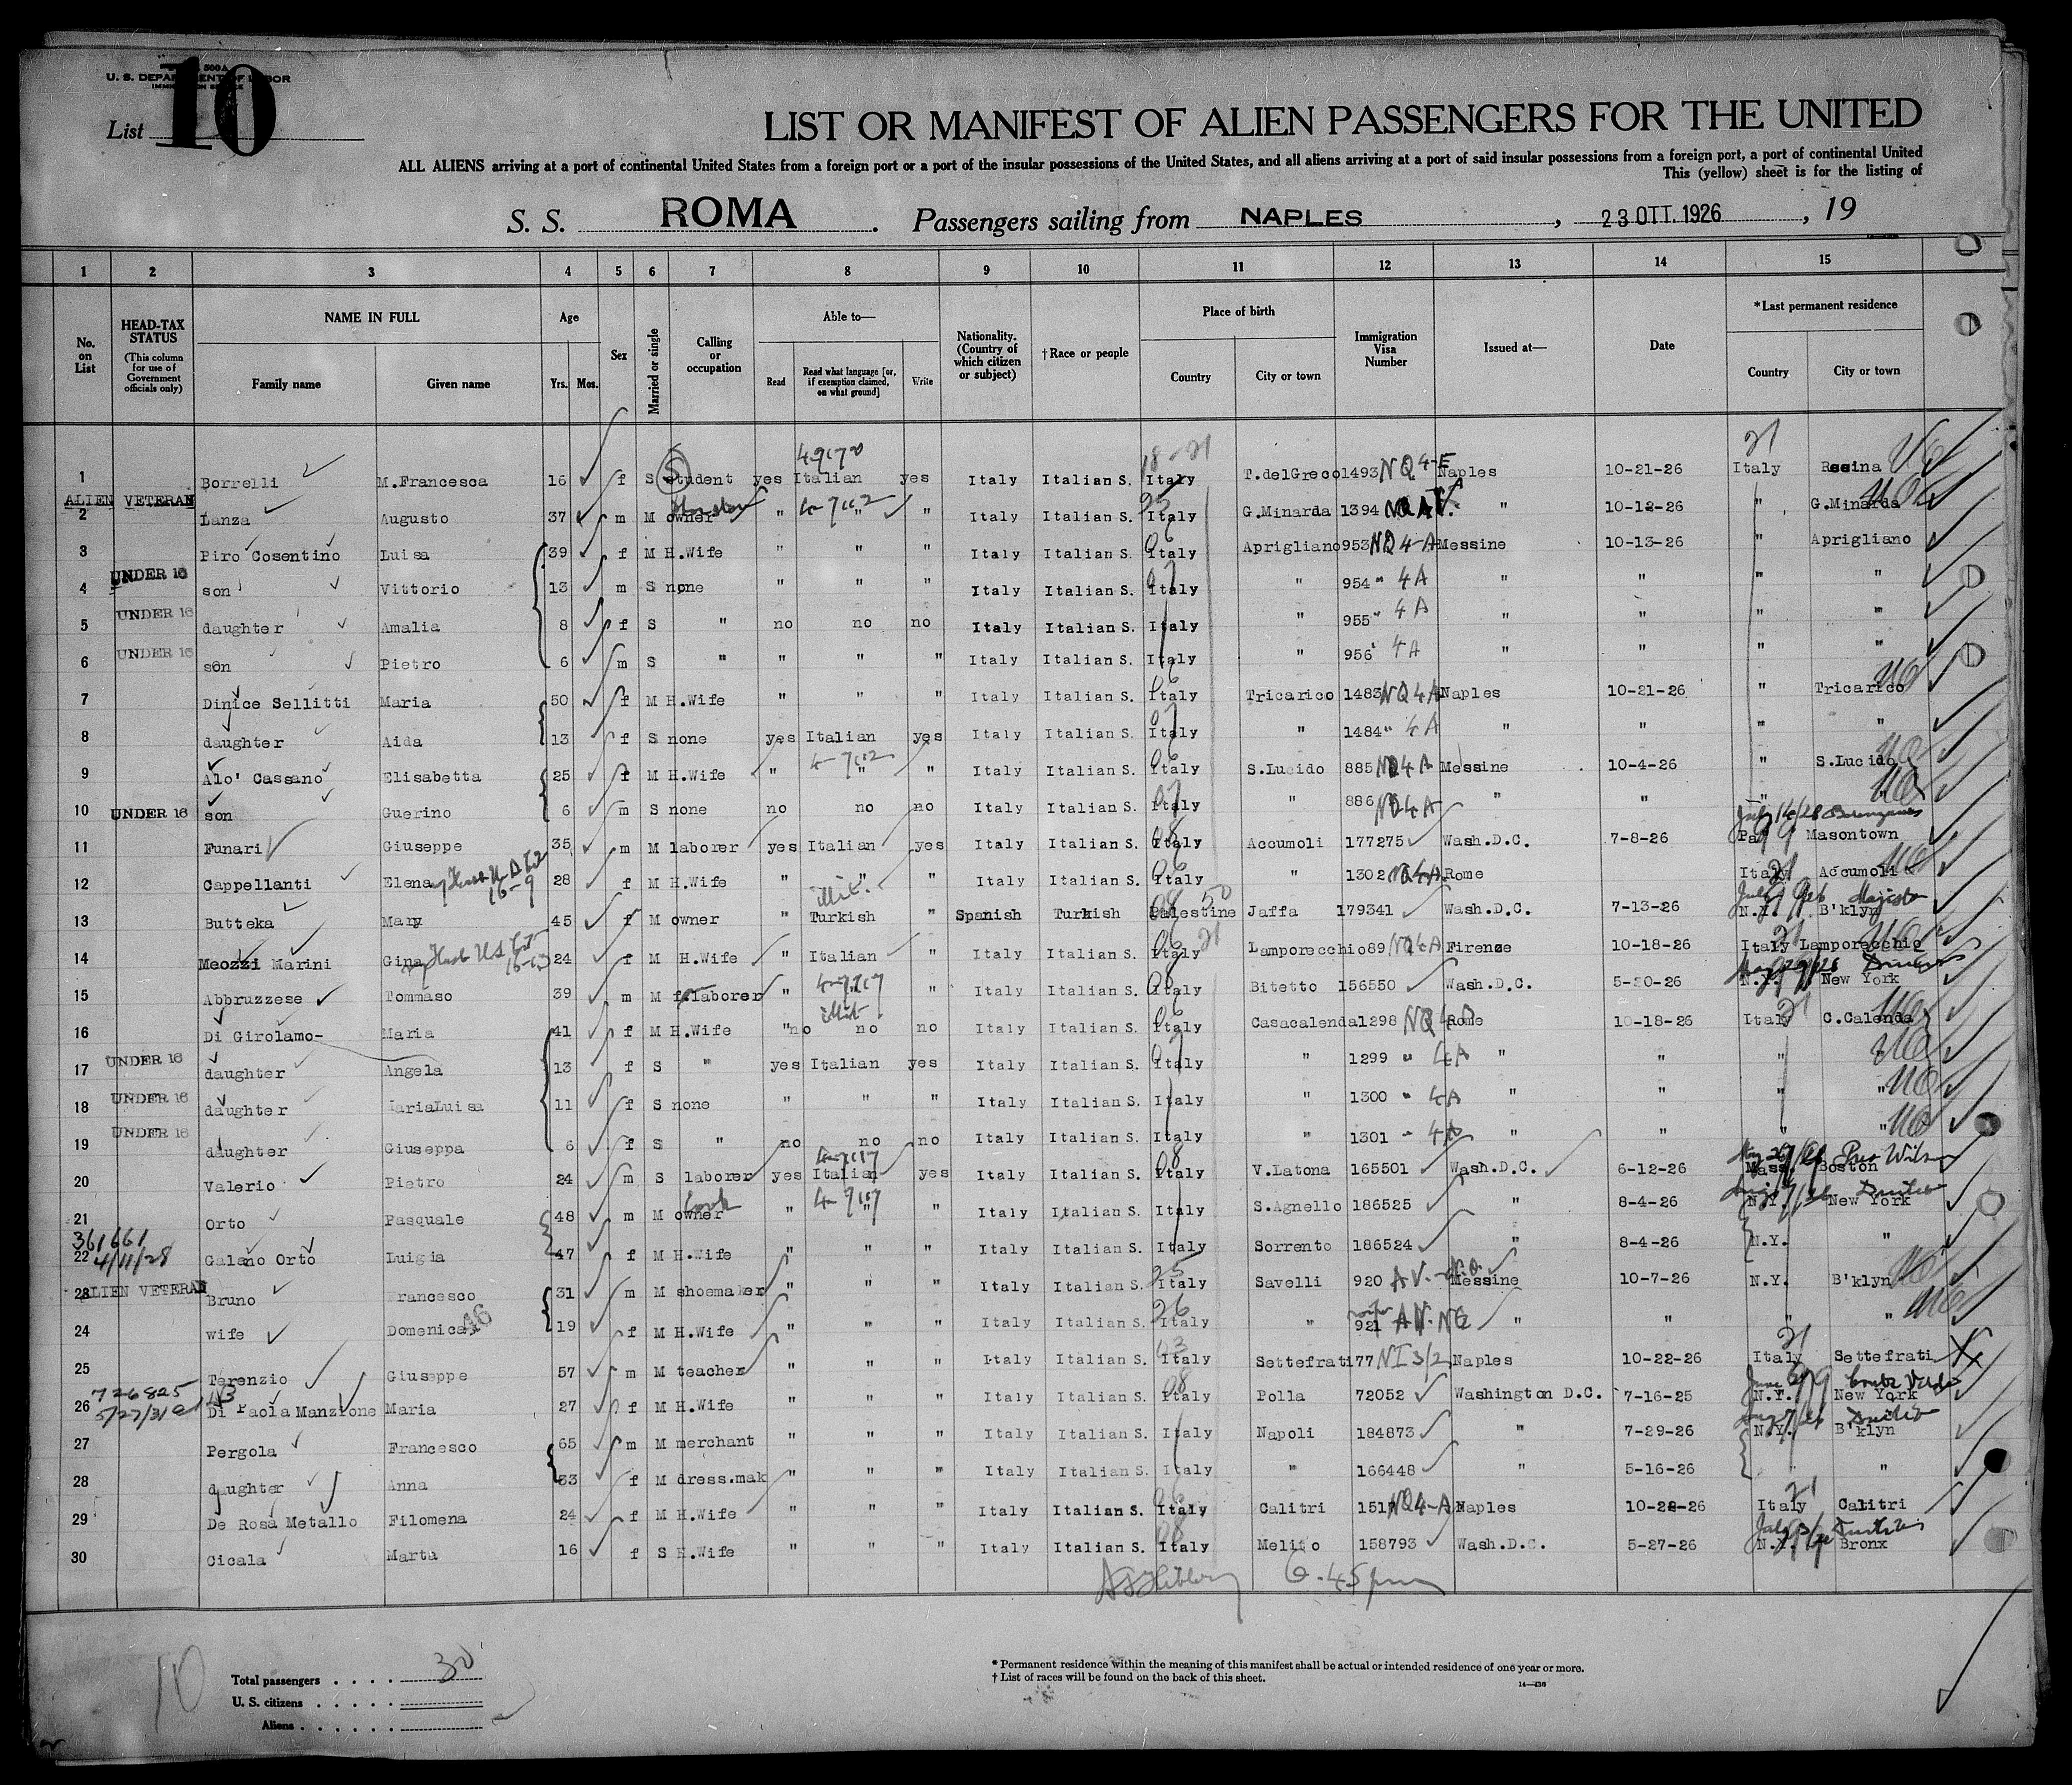 500A
U. S. DEPARTMENT OF LABOR
List 10
LIST OR MANIFEST OF ALIEN PASSENGERS FOR THE UNITED
ALL ALIENS arriving at a port of continental United States from a foreign port or a port of the insular possessions of the United States, and all aliens arriving at a port of said insular possessions from a foreign port, a port of continental United
This (yellow) sheet is for the listing of
S. S. ROMA . Passengers sailing from NAPLES , 23 OTT. 1926 , 19
1 2 3 4 5 6 7 8 9 10 11 12 13 14 15
No. on List HEAD-TAX STATUS (This column for use of Government officials only) NAME IN FULL Family name Given name Age Yrs. Mos. Sex Married or single Calling or occupation Able to— Read Read what language [or, if exemption claimed, on what ground] Write Nationality. (Country of which citizen or subject) †Race or people Place of birth Country City or town Immigration Visa Number Issued at— Date *Last permanent residence Country City or town
1 Borrelli M.Francesca 16 f S Student yes Italian yes Italy Italian S. Italy T.delGreco 1493 NQ4-E Naples 10-21-26 Italy Resina
ALIEN VETERAN
2 Lanza Augusto 37 m M owner " " " Italy Italian S. Italy G.Minarda 1394 " 10-12-26 " G.Minarda
3 Piro Cosentino Luisa 39 f M H.Wife " " " Italy Italian S. Italy Aprigliano 953 NQ4-A Messine 10-13-26 " Aprigliano
UNDER 16
4 son Vittorio 13 m S none " " " Italy Italian S. Italy " 954 " 4A " " " "
UNDER 16
5 daughter Amalia 8 f S " no no no Italy Italian S. Italy " 955 " 4A " " " "
UNDER 16
6 son Pietro 6 m S " " " " Italy Italian S. Italy " 956 " 4A " " " "
7 Dinice Sellitti Maria 50 f M H.Wife " " " Italy Italian S. Italy Tricarico 1483 NQ4A Naples 10-21-26 " Tricarico
8 daughter Aida 13 f S none yes Italian yes Italy Italian S. Italy " 1484 " 4A " " " "
9 Alo' Cassano Elisabetta 25 f M H.Wife " " " Italy Italian S. Italy S.Lucido 885 NQ4A Messine 10-4-26 " S.Lucido
10 UNDER 16 son Guerino 6 m S none no no no Italy Italian S. Italy " 886 NQ4A " " " "
11 Funari Giuseppe 35 m M laborer yes Italian yes Italy Italian S. Italy Accumoli 177275 Wash.D.C. 7-8-26 Pa Masontown
12 Cappellanti Elena 28 f M H.Wife " " " Italy Italian S. Italy " 1302 NQ4A Rome Italy Accumoli
13 Butteka Mary 45 f M owner " Turkish " Spanish Turkish Palestine Jaffa 179341 Wash.D.C. 7-13-26 N.Y. B'klyn
14 Meozzi Marini Gina 24 f M H.Wife " Italian " Italy Italian S. Italy Lamporecchio 89 NQ4A Firenze 10-18-26 Italy Lamporecchio
15 Abbruzzese Tommaso 39 m M laborer " " Italy Italian S. Italy Bitetto 156550 Wash.D.C. 5-20-26 N.Y. New York
16 Di Girolamo- Maria 41 f M H.Wife no no no Italy Italian S. Italy Casacalenda 1298 Rome 10-18-26 Italy C.Calenda
UNDER 16
17 daughter Angela 13 f S " yes Italian yes Italy Italian S. Italy " 1299 " 4A " " " "
UNDER 16
18 daughter MariaLuisa 11 f S none " " " Italy Italian S. Italy " 1300 " 4A " " " "
UNDER 16
19 daughter Giuseppa 6 f S " no no no Italy Italian S. Italy " 1301 " 4A " " " "
20 Valerio Pietro 24 m S laborer yes Italian yes Italy Italian S. Italy V.Latona 165501 Wash.D.C. 6-12-26 Mass. Boston
21 Orto Pasquale 48 m M owner Cook " " " Italy Italian S. Italy S.Agnello 186525 " 8-4-26 N.Y. New York
361661
4/11/28
22 Galano Orto Luigia 47 f M H.Wife " " " Italy Italian S. Italy Sorrento 186524 " 8-4-26 N.Y. "
ALIEN VETERAN
23 Bruno Francesco 31 m M shoemaker " " " Italy Italian S. Italy Savelli 920 Messine 10-7-26 N.Y. B'klyn
24 wife Domenica 19 f M H.Wife " " " Italy Italian S. Italy " 921 " " " "
25 Terenzio Giuseppe 57 m M teacher " " " Italy Italian S. Italy Settefrati 77 NI 3/2 Naples 10-22-26 Italy Settefrati
726825
5/27/31
26 Di Paola Manzione Maria 27 f M H.Wife " " " Italy Italian S. Italy Polla 72052 Washington D.C. 7-16-25 N.Y. New York
27 Pergola Francesco 65 m M merchant " " " Italy Italian S. Italy Napoli 184873 " 7-29-26 N.Y. B'klyn
28 daughter Anna 33 f M dress.mak " " " Italy Italian S. Italy " 166448 " 5-16-26 " "
29 De Rosa Metallo Filomena 24 f M H.Wife " " " Italy Italian S. Italy Calitri 1517 NQ4-A Naples 10-22-26 Italy Calitri
30 Cicala Marta 16 f S H.Wife " " " Italy Italian S. Italy Melito 158793 Wash.D.C. 5-27-26 N.Y. Bronx
6.45 pm
10
Total passengers . . . . 30
U. S. citizens . . . . .
Aliens . . . . . .
* Permanent residence within the meaning of this manifest shall be actual or intended residence of one year or more.
† List of races will be found on the back of this sheet.